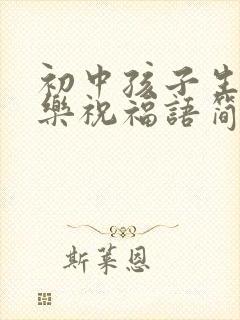 初中孩子生
樂祝福語简
斯莱恩